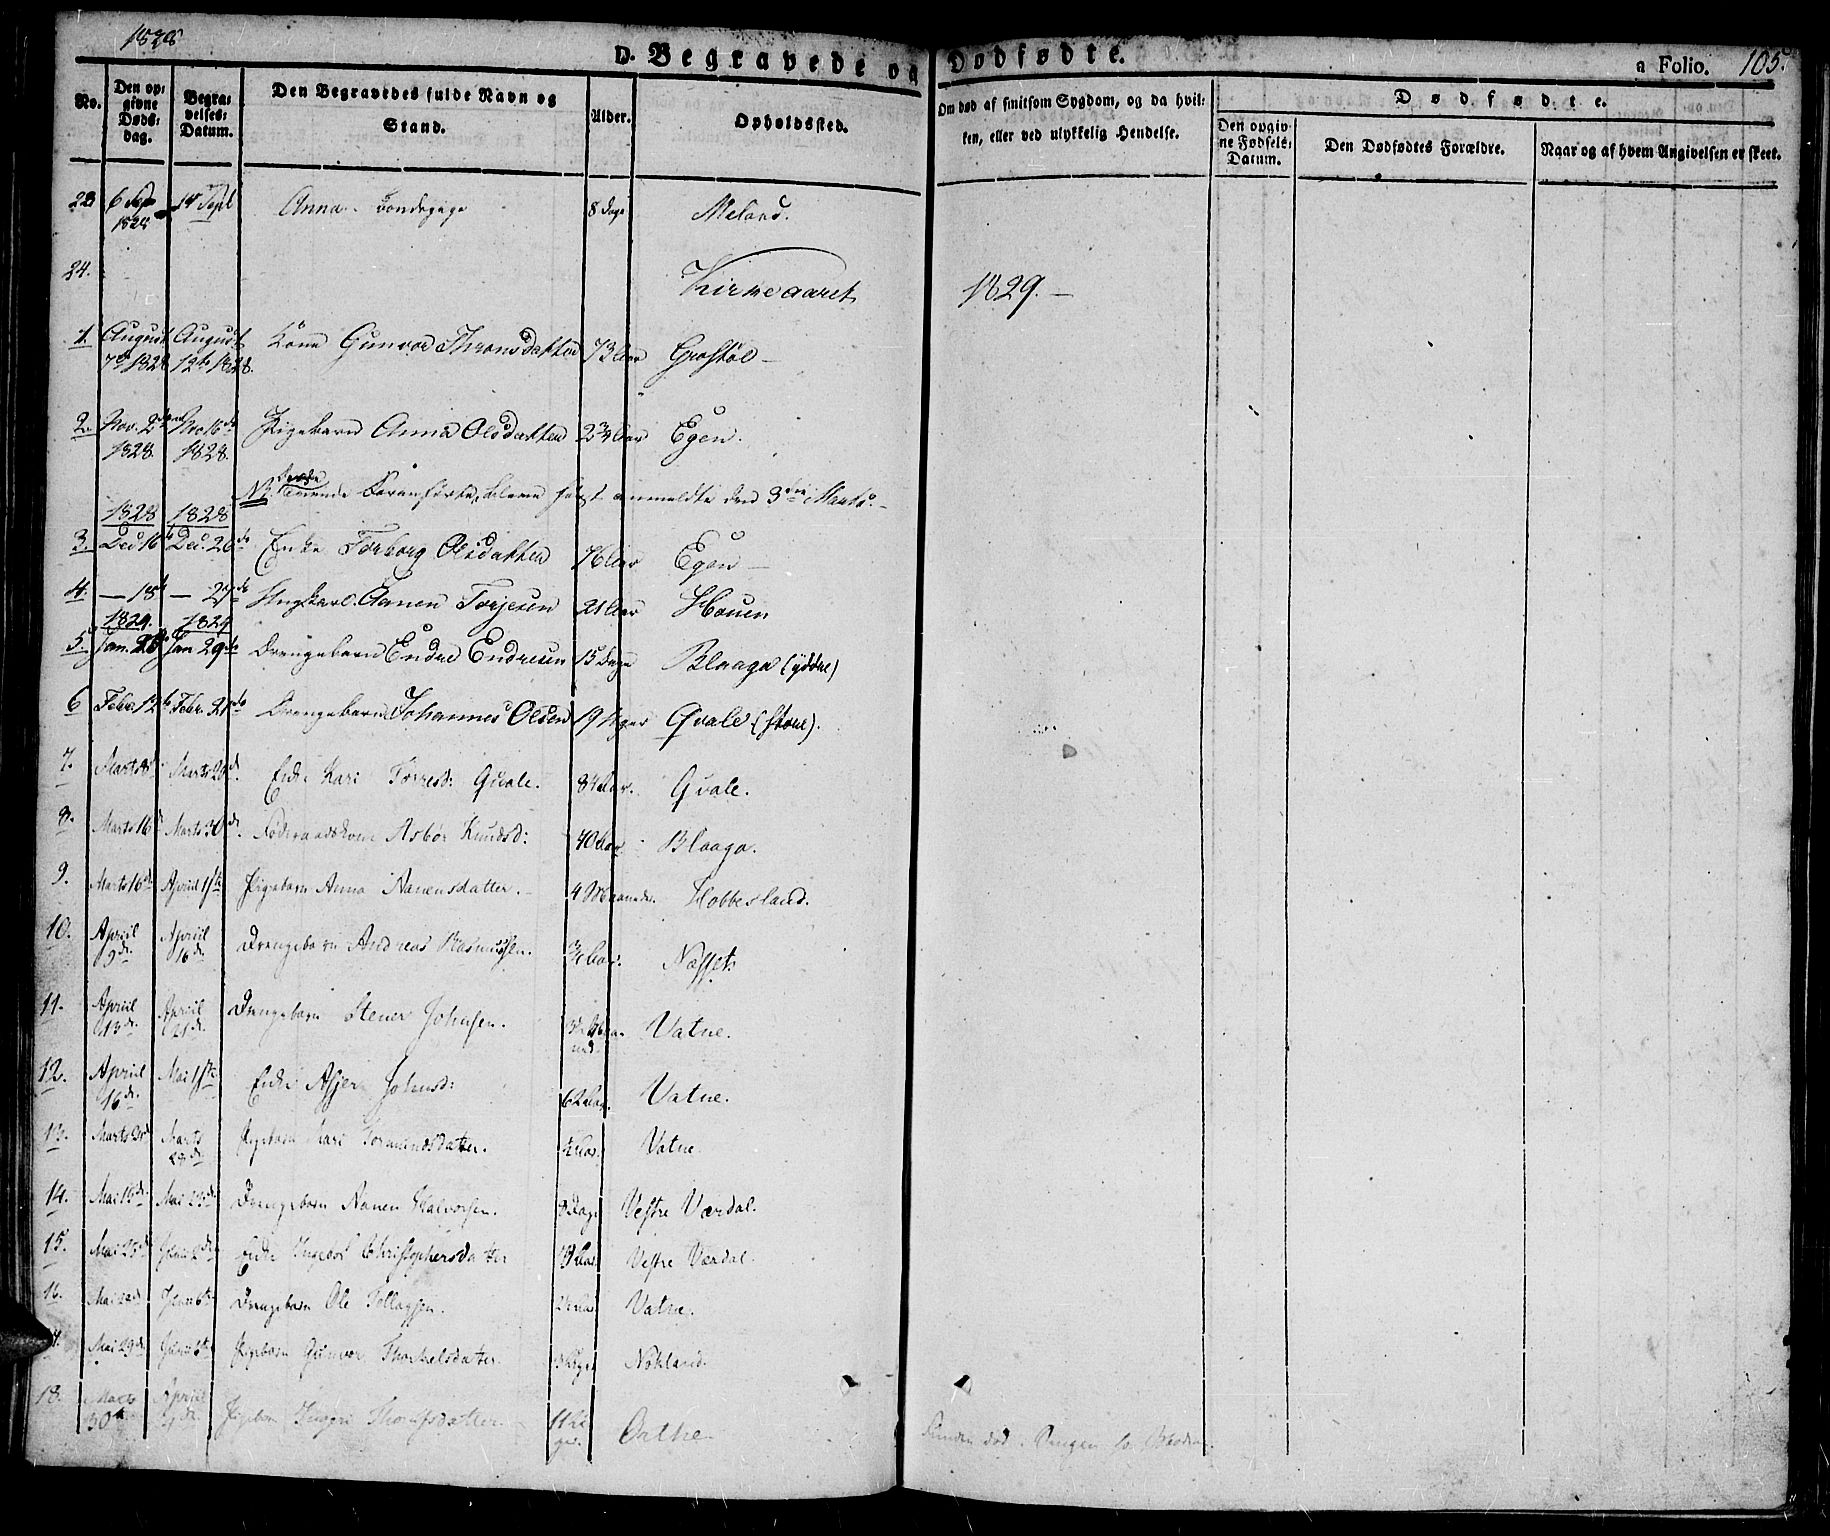 1828
D. Begravede og Dødfødte.
a Folio. 105.
No.
Den opgivne Døds-dag.
Begravelses-Datum.
Den Begravedes fulde Navn og Stand.
Alder.
Opholdssted.
Om død af smitsom Sygdom, og da hvilken, eller ved ulykkelig Hendelse.
Dødfødte.
Den opgivne Fødsels-Datum.
Den Dødfødtes Forældre.
Naar og af hvem Angivelsen er skeet.
23 6 Sep 1828 14 Sept Anna 8 Dage Meland.
24.
Kirkeaaret 1829. —
1. August 7de 1828 August 12te 1828. Kone Gunvor Thronsdatter 73 Aar Grostøl —
2. Nov. 2den 1828. Nov 16de 1828. Pigebarn Anna Olsdatter 2 3/4 Aar Egen.
NB. Denne foranførte bleve først anmeldte den 3die Marts. —
1828 1828
3. Dec 16de Dec. 26de Enke Torborg Olsdatter 76 Aar Egen —
4. — 18de — 27de Ungkarl Aanen Torjesen 21 Aar Houen
1829. 1829
5. Jan. Jan 29de Drengebarn Endre Endresen 15 Dage Blaaga (yddre)
6 Febr. 12te Febr. 21de Drengebarn Johannes Olsen 19 Uger Qvale (store).
7. Marts 8de Marts 20de Enke Kari Torresd: Qvale. 84 Aar. Qvale.
8. Marts 16de Marts 30de Føderaadskone Asbør Knudsd: 40 Aar Blaaga.
9. Marts 16de Apriil 1ste Pigebarn Anna Aanensdatter. — 4 Maaneder. Hobbesland.
10. Apriil 9de Apriil 16de Drengebarn Andreas Rasmussen. 3/4 Aar. Næsset.
11. Apriil 13de Apriil 21de Drengebarn Stener Johnsen. Vatne.
12. Apriil 16de Mai 1ste Enke Asjer Johnsd: 62 Aar. Vatne.
13. Marts Marts 28de Pigebarn Kari Tormundsdatter. Vatne.
14. Mai 15de Mai 23de Drengebarn Aanen Halvorsen. 8 Dage Vestre Værdal.
15. Mai 25de Junii 2den Enke Ingebor Christophersdatter Vestre Værdal.
16. Mai 22de Junii 6te Drengebarn Ole Tellagsen. Vatne.
Mai 29de Junii 6te Pigebarn Gunvor Thorkelsdatter. Nokland.
18. Marts 30te Apriil Pigebarn Thorufsdatter 11 Uger Oathe
Funden død i Sengen